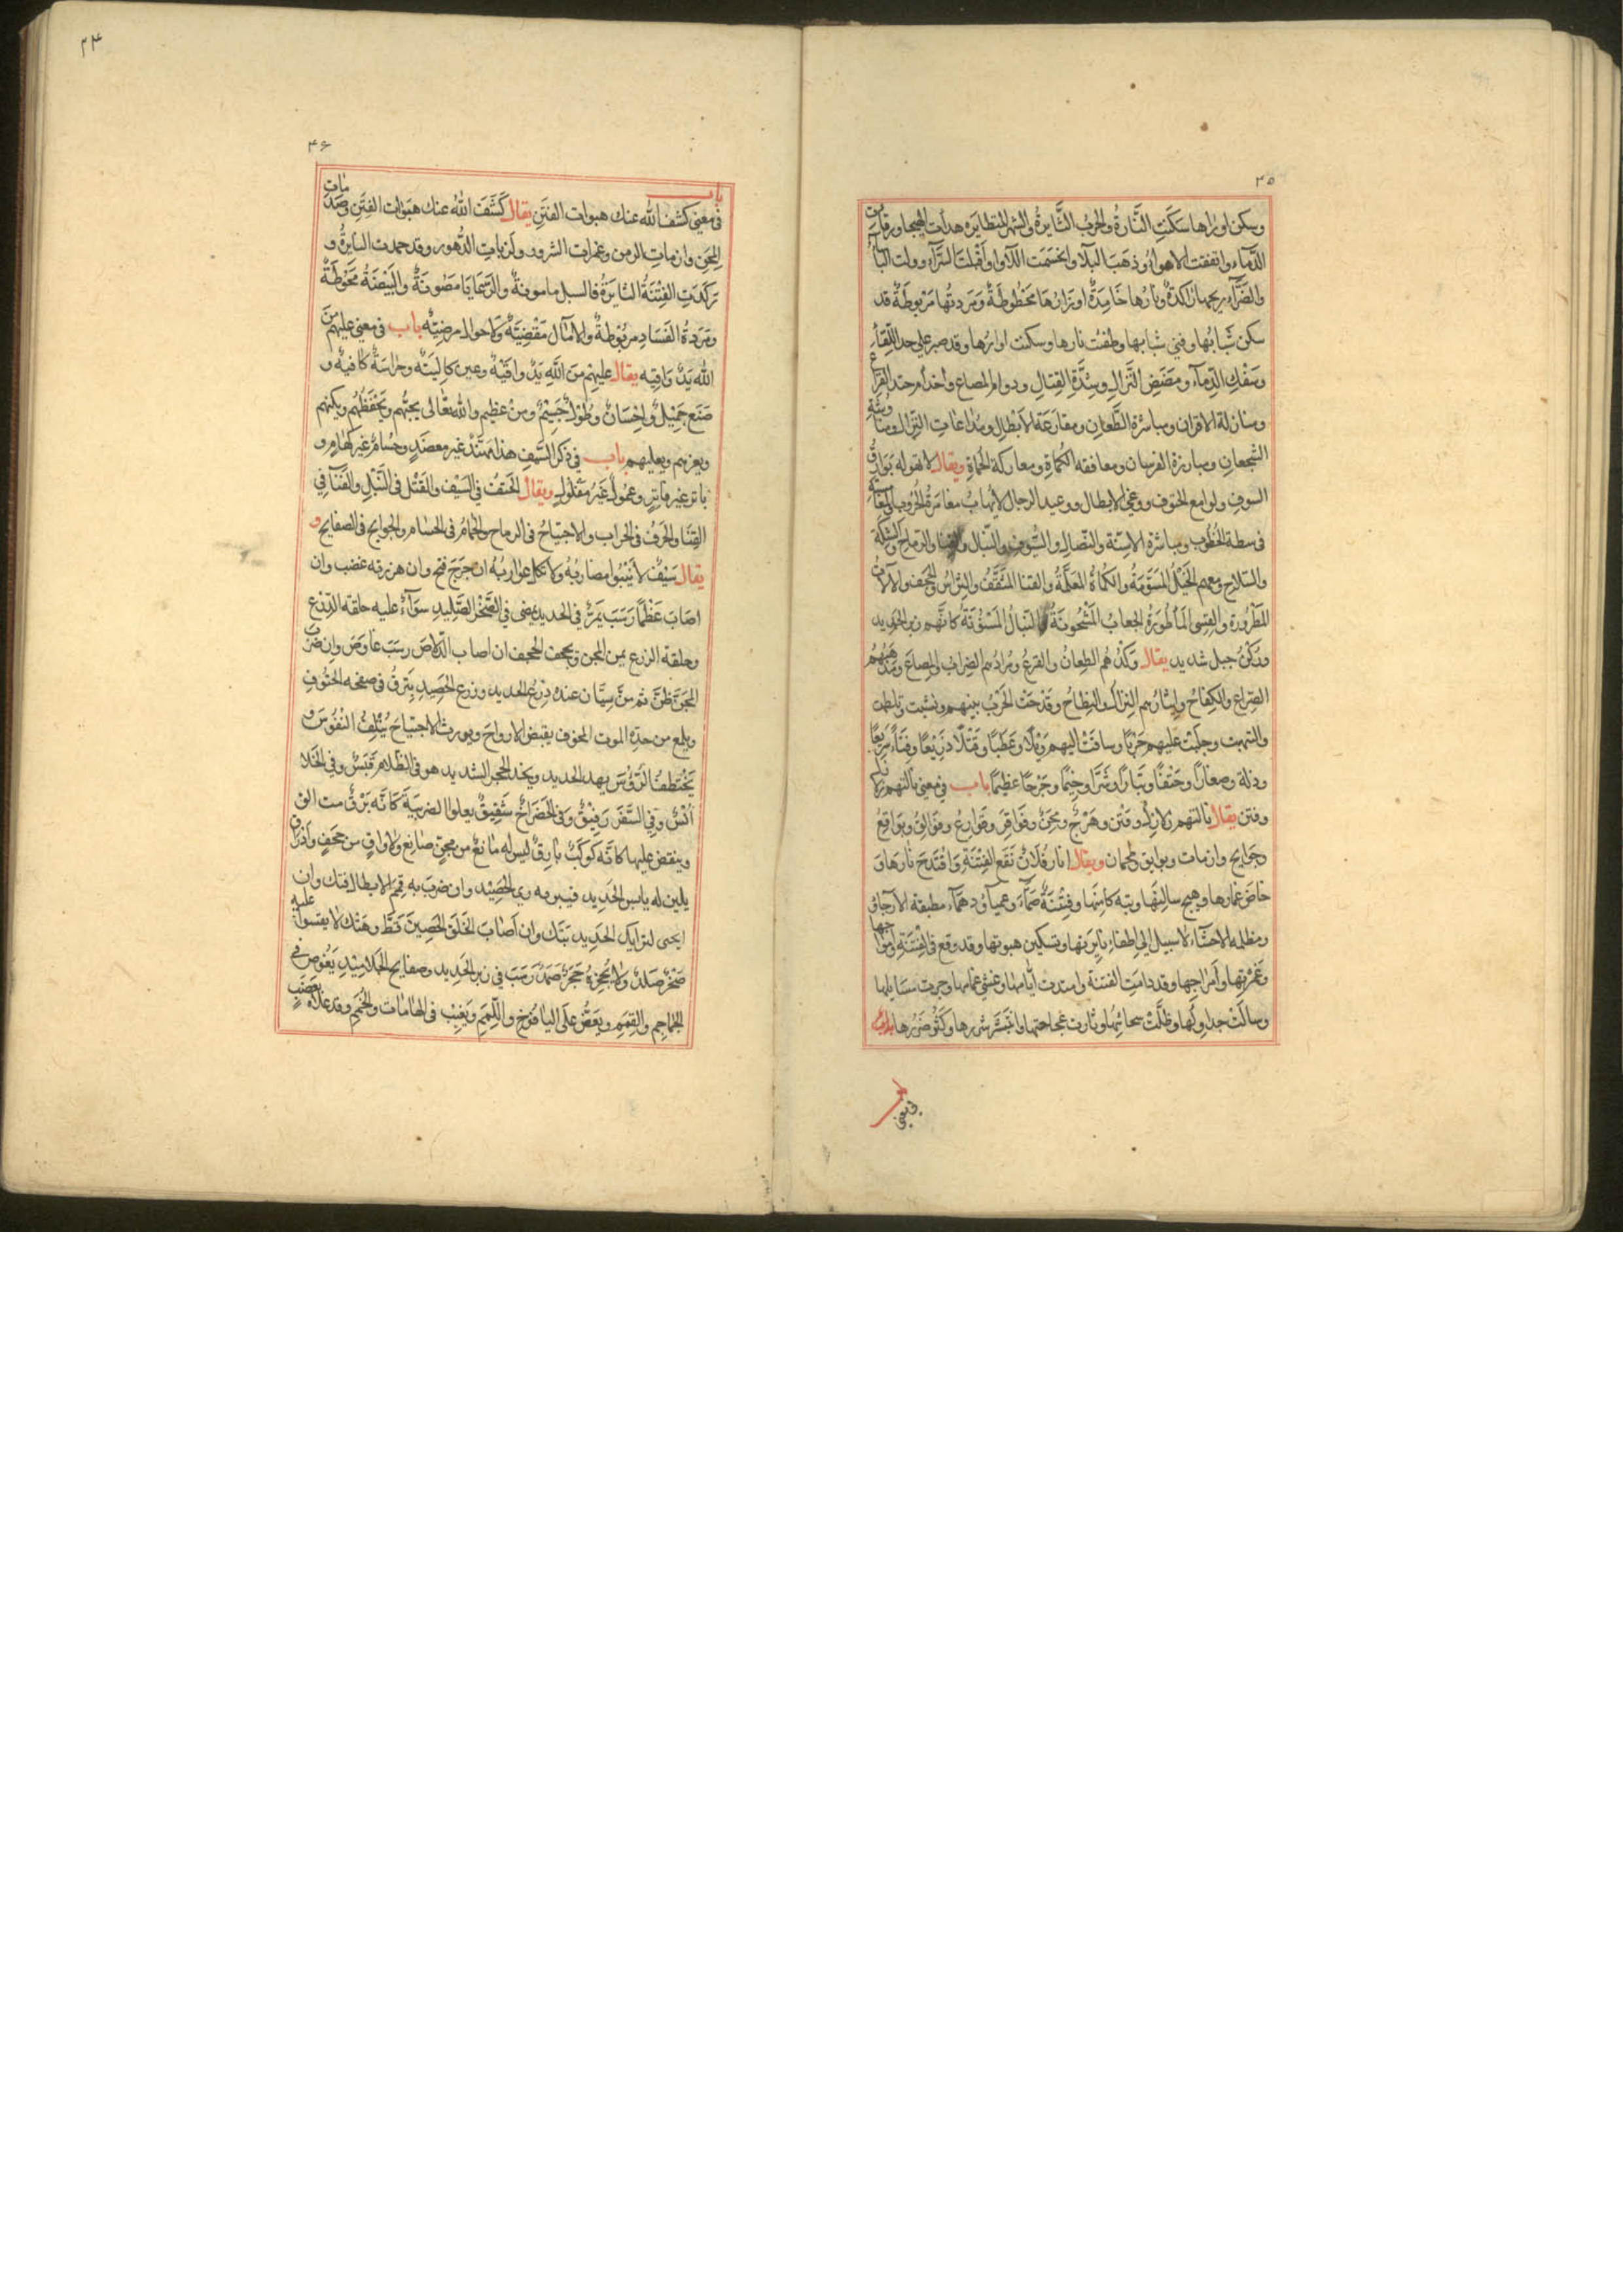 ٤٥
وسكن اوزارها سكنت النَّارةُ والحربُ الثَّايرةُ والشهر المتطايره هدأت الهيجا ورقات
الدّماء واتفقت الاهواءُ وذهَبَ البلآ وانحسَمَت اللآوا واَقْبَلتَ السَّرّآء وولت البأسآء
والضَّرّآء ريحها رَاكدةٌ ونارُها خَامِدَةٌ اوزارُهَا مَحْطُوطَةٌ وَمَردتُها مَرْبوطَةٌ قد
سكن شَبابُها وفني شبابها وطفئت نارها وسكنت اوارُها وقد صبر على حد اللّقآء
وسَفْكِ الدِّمآء ومَضَضِ النِّزالِ وشِدَّةِ القِتالِ ودوام المصاع وأخذ امر حد القراع
ومنازلة الاقران ومباشرة الطّعان ومقارعَة الاَبْطالِ ومُداعَاتِ النِّزال ومناوشة
الشجعان ومبارزة الفرسان ومعافقه الكُماةِ ومعاركة الحُماةِ ويقال لا تهوله بَوارقُ
السيوف ولوامع الحتوف ووغي الابطال ووعيد الرجال لا يهابُ مغامرَةَ الحُروبِ
فى سطة الخُطُوب ومباشرة الاسنّة والنّصال والسُّيوف والنّبال والقنا والرماح والشكة
والسّلاح ومعهم الخَيْلُ المسَوَّمَةُ والكماةُ المعَلَّمَةُ والقنا المُثَقَّفُ والتِراسُ والحَجَف والآلاتُ
المَطْرُورَة والقِسِى المأطُورَةُ والجعابُ المَشْحُونَةُ والنبالُ المَسْنُونَةُ كانَّهم زبر الحَديد
ورُكْنُ جبل شديد يقال وَكْدُ هُم الطِعانُ والقرعُ ومُرادُهم الضِرابُ والمِصاعُ ومَذهَبُهُم
الصِّراع والكِفاحُ وايثارُهم النِزال والنِطاحُ وقَدْحَتْ الحَرْبُ بينهم ونشبت وتلظت
والتهبت وجلَبْت عليهم حَرْبًا وساقتْ اليهم وَيْلاً وعَطَبًا وقَتْلاً ذَرِيْعًا وفَنَاءً سَريْعًا
وذلة وصغارًا وحَتْفًا وتَبَارًا وشَرًّا وخِيْمًا وجَرْحًا عظيمًا باب في معنى نالتهم زلازل
وفتن يقال نالتهم زلازلُ وفتن وهَرْجٌ ومحَنٌ وفواقِرُ وقوارعُ وفوالقُ وبَواقِعُ
وجَوايح وازمات وبوايق ولحمات ويقال اثار فُلانٌ نَقْعَ الفِتْنَةِ وَاقْتَدَحَ نارَها وَ
خاضَ غمارها وهيج ساكِنَهَا ونبّه كامِنَها وفِتْنَةٌ صَمَّآء وعمياءُ ودهمآء مطبقة الارجآء
ومظلمه الاحشآء لا سبيل الى اطفاءِ نايرتها وتسكين هبوتها وقد وقع في الفتنةِ وامواجها
وغَمْرتِها وأَمْرَاجِها وقد دامَتِ الفتنة وامتدت ايَّامها وغَشِيَ غمامها وجرت مسَايلها
وسالَتْ جداوِلُها وظلَّت سحائبُها وثارت عجاجتها وانتشَر شررها وكثُر ضررها باب
في معنى
٢٤
٤٦
باب
في معنى كشف الله عنك هبوات الفتن يقال كَشَفَ اللهُ عنك هَبَوات الفِتَنِ وصَدَمات
المِحَنِ وازماتِ الزمن وغمرات الشرور ولزبات الدُّهور وقد خمدت النايرةُ و
رَكَدتِ الفِتْنَةُ الثايرَةُ فالسبل مامونةٌ والرّعايا مَصُونَةٌ والبَيْضَةُ مَحُوطَةٌ
ومَردةُ الفَسَادِ مربُوْطةٌ والآمَال مَقْضِيَةٌ والاحوال مرضِيّه باب في معنى عليهم منَ
الله يَدٌ وَاقيه يقال عليهم منَ اللهِ يَدٌ واقيةٌ وعين كالِيَتُه وحرَاسَةٌ كافيةٌ و
صَنع جَميْلٌ واِحْسَانٌ وطُوْلٌ جَسِيْمٌ ومنٌ عظيم والله تعالى يحبُّهم ويَحْفَظُهُم ويكنهم
ويعزهم ويعليهم باب في ذكر السّيف هذا مُهنَّدٌ غير معضَدٍ وحُسَامٌ غير كهَامٍ و
باتر غير فاترٍ ومَعْمُولٌ غَيرُ مَفْلُوْلٍ ويقال الحَتفُ في السَيْف والقَتْل في النَّبْلِ والفَنآ في
القَنَا والحَرفُ في الحراب والاجتِيَاحُ في الرماح والحِمَامُ في الحسام والجوايح في الصفايح و
يقال سَيْفٌ لا يَنْبُوا مضارِبُهُ ولا تكل غواربُهُ ان جَرَحَ فتح وان هززته غضب وان
اصَابَ عَظْمًا رَسَبَ يَمرُّ في الحديد ويمضى في الصَّخْر الصَّليد سوَآءٌ عليه حلقه الدِّرْع
وحلقة الزرع بين المجن وبحجف الحجف ان اصاب الدّلاص رسَبَ غاوصَ وان ضرب
المجَنَّ ظنَّ ثم رنَّ سِيّان عنده دِرْعُ الحديد وزرع الحَصِيدِ يبَرقُ في صفحه الحتُوْفِ
ويلمع من حدّه الموت المخوف يقبض الارواح ويورث الاجتياحَ يُتْلِفُ النُفُوْسَ و
يَخْتطِفُ الرُؤُسَ يهد الحديد ويخد الحجر الشديد هو في الظَّلام قَبَسٌ وفي الخَلا
اُنْسٌ وفي السَّفَر رَفِيْقٌ وفي الحَضَر اخٌ شَفِيْقٌ يعلوا الضريبَةَ كَانَّه بَرْقٌ
وينقض عليها كانَّه كوكَبٌ بارقٌ ليس له مَانعٌ من مِجَنٍّ صانِعٍ ولا واقٍ من حَجَفٍ واَدْراقٍ
يلين له يابس الحَديد وان ضربَ به قِمَمَ الابطال فتك وان
الحَديدِ بَتَك وان اَصَابَ الخَلَقَ الحَصِينَ قَطَّ وهَتَكَ لا يقسوا عليه
صَخْرٌ صَلْدٌ ولا يُعْجِزهُ حَجَرٌ صَمْدٌ رَسَبَ في زبر الحَديد وصفايح الجَلامِيْدِ يَغُوص في
الجَمَاجِم والقِمَمِ ويَعَضُّ على اليَافُوْخ واللِّمَمِ ويَغِيْبُ في الهَامَات والجُمَمِ وقد علاه بعَضْبٍ